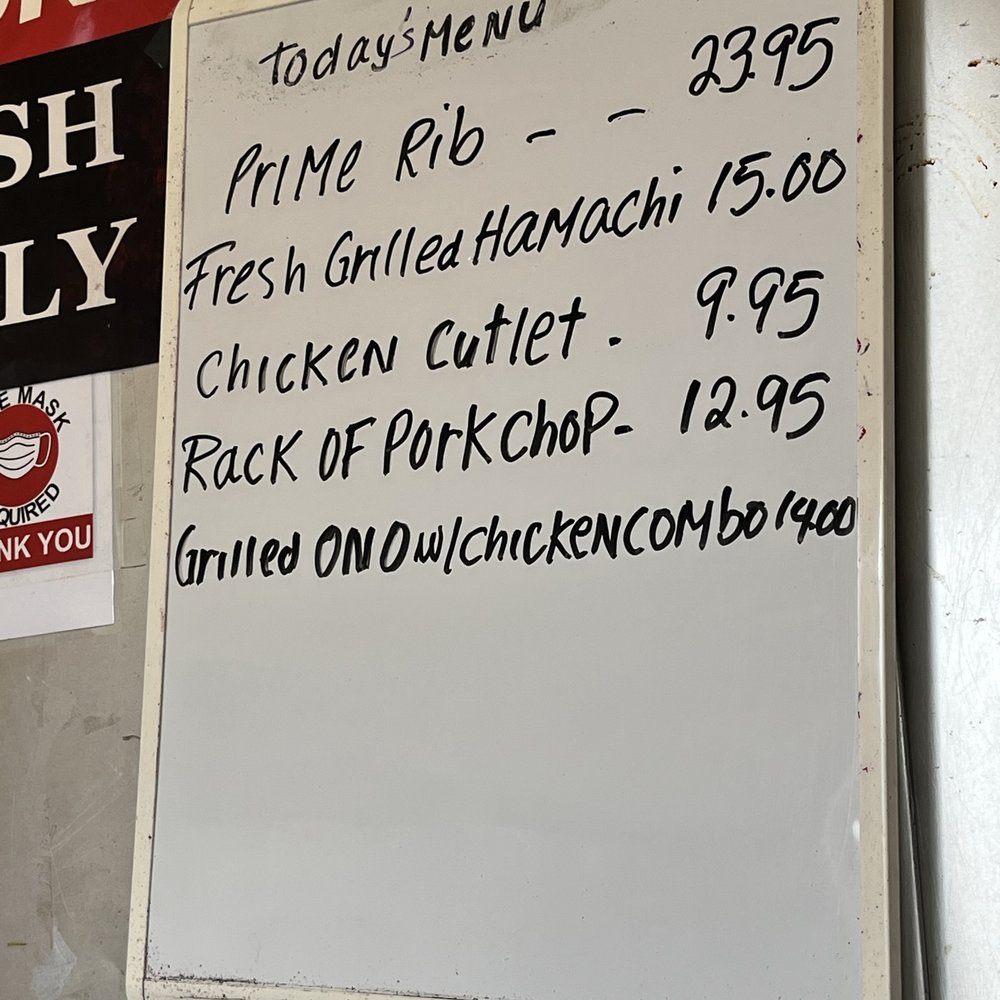 SH
LY
E MASK
QUIRED
NK YOU
Today's Menu
Prime Rib - - 23.95
Fresh Grilled Hamachi 15.00
Chicken Cutlet . 9.95
Rack OF Pork Chop- 12.95
Grilled ONO w/chicken combo 14.00